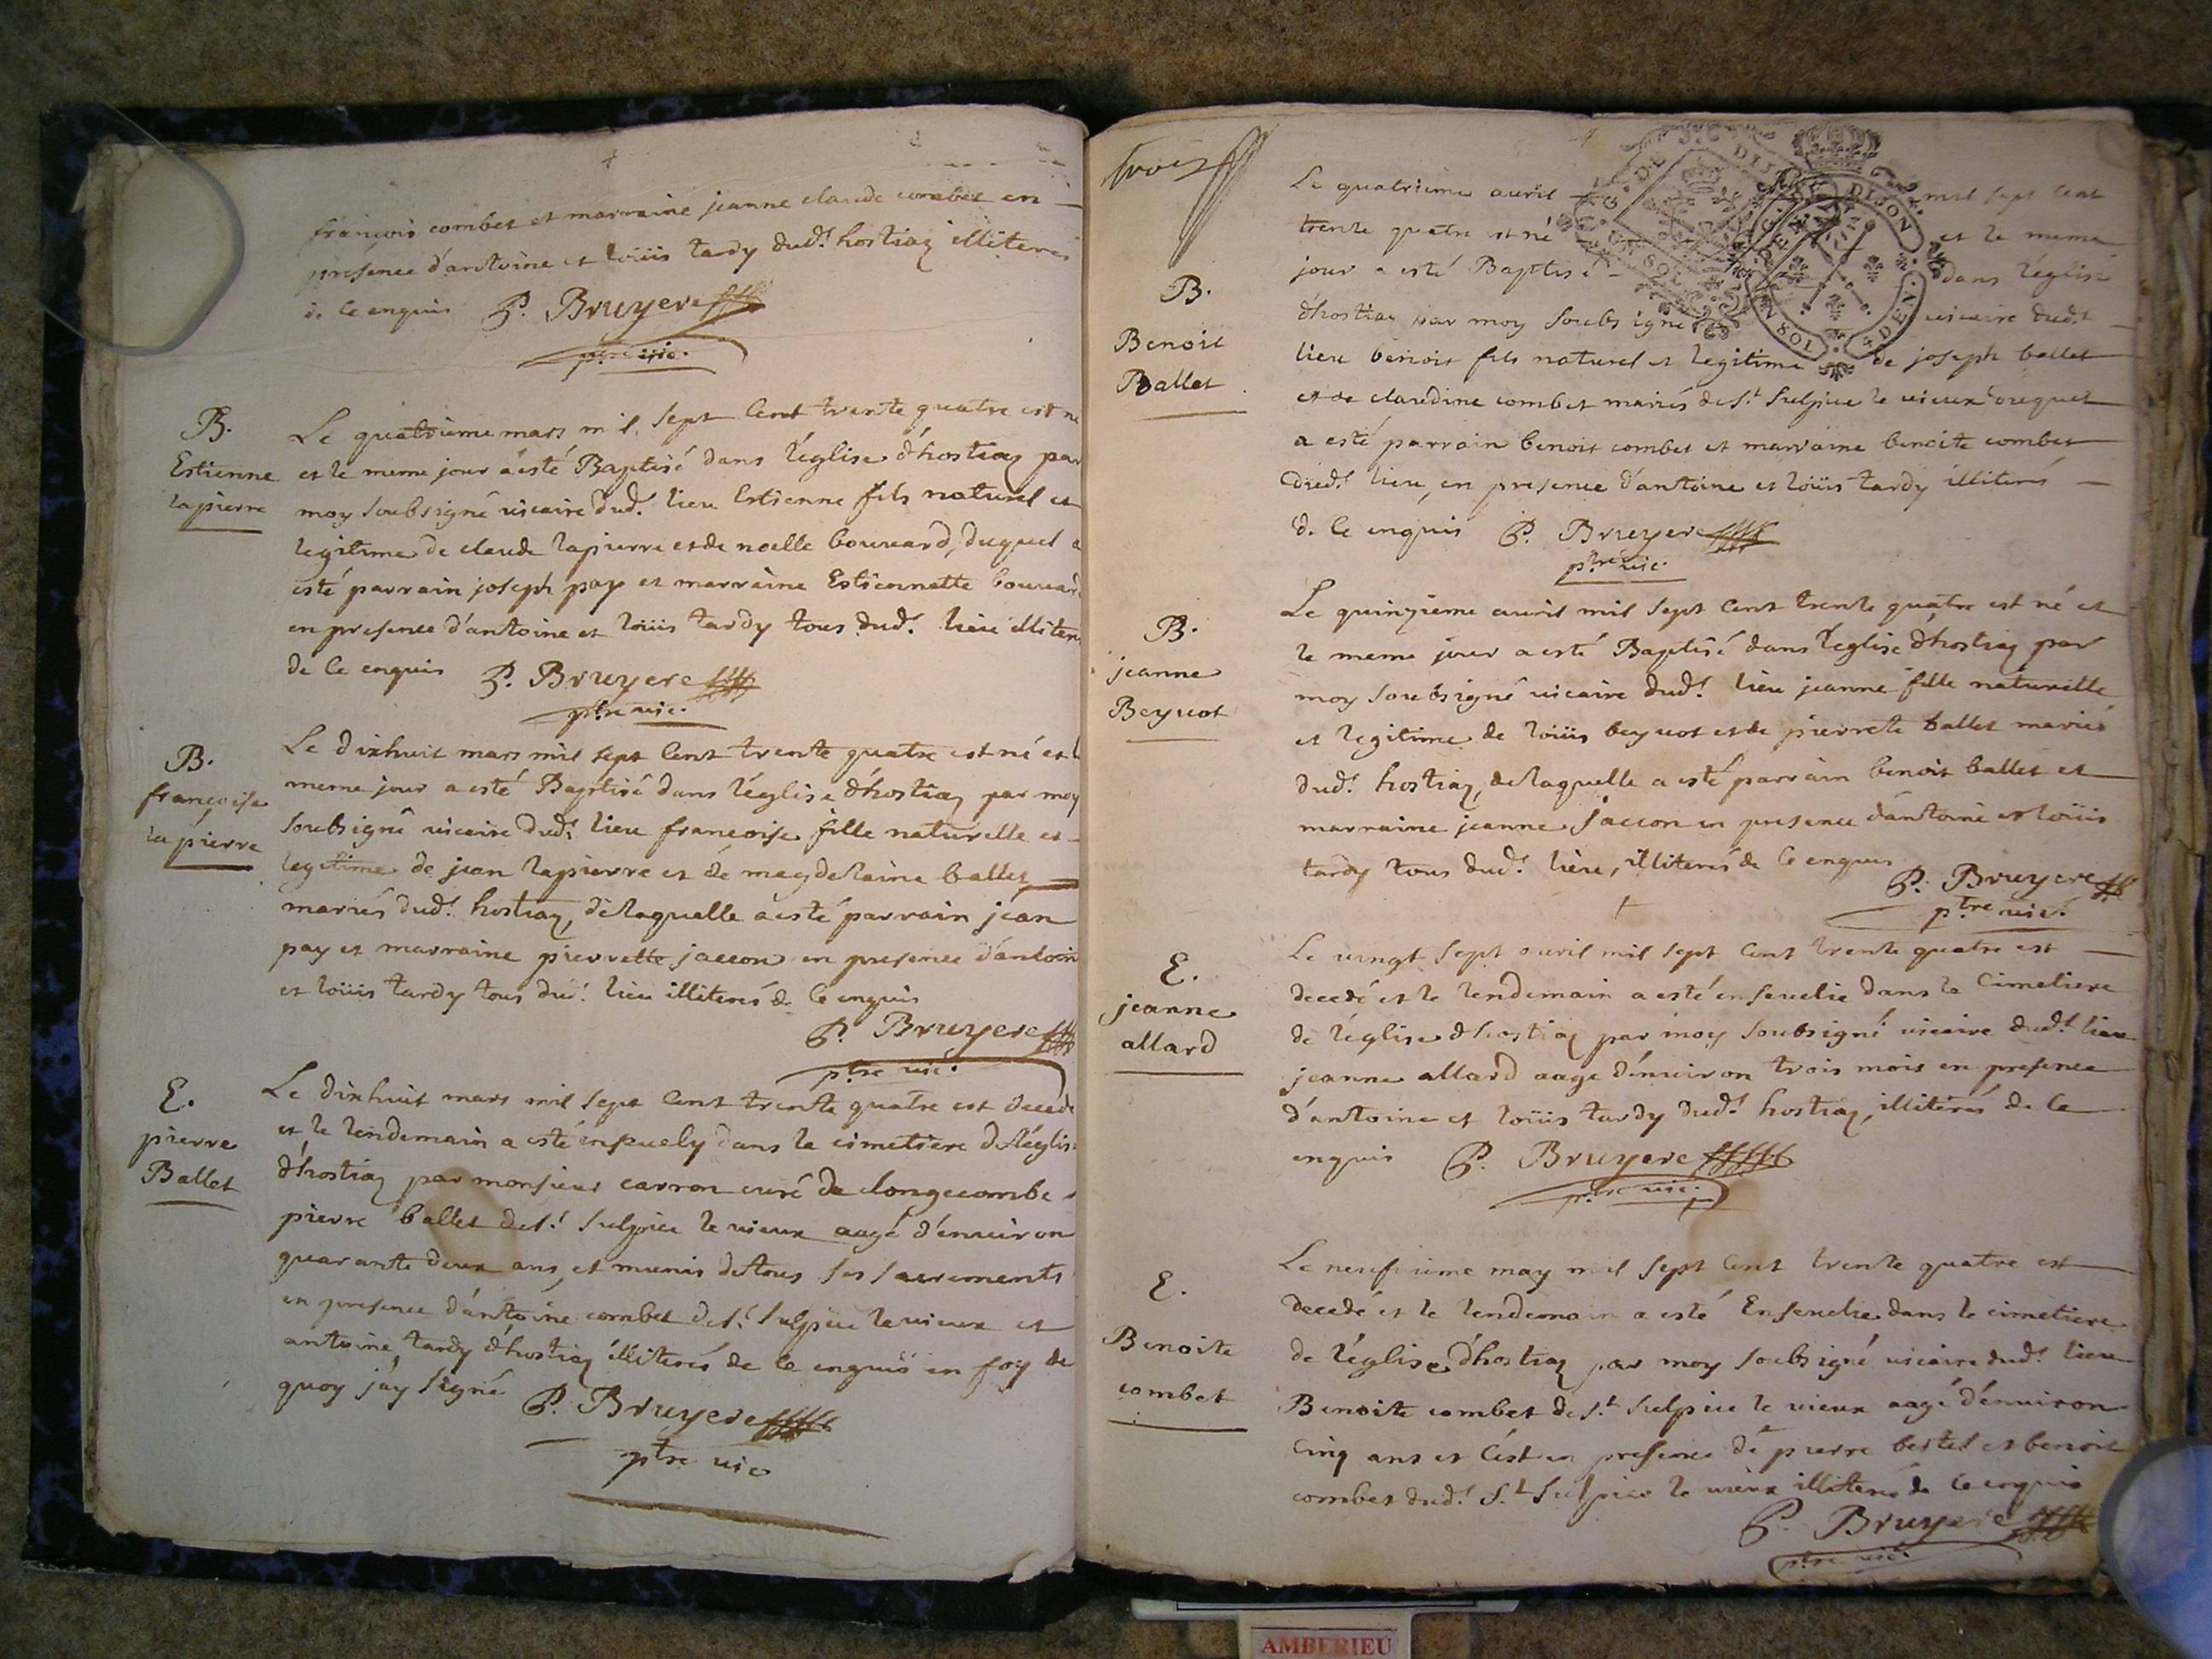 françois combet et marraine jeanne claude combet en
presence d'antoine et loüis tardy dud.t hostiaz illiterés
de ce enquis P. Bruyere
ptre vic.
B.
Estienne
lapierre
Le quatrieme mars mil sept cent trente quatre est né
et le meme jour a esté Baptisé dans l'église d'hostiaz par
moy soubsigné vicaire dud.t lieu Estienne fils naturel et
legitime de claude lapierre et de noelle bouvard, duquel a
esté parrain joseph pay et marraine Estiennette bouvard
en presence d'antoine et loüis tardy tous dud.t lieu illiterés
de ce enquis P. Bruyere
ptre vic.
B.
françoise
la pierre
Le dixhuit mars mil sept cent trente quatre est né et le
meme jour a esté Baptisé dans l'église d'hostiaz par moy
soubsigné vicaire dud.t lieu françoise fille naturelle et
legitime de jean lapierre et de magdelaine ballet
mariés dud.t hostiaz, de laquelle a esté parrain jean
pay et marraine pierrette jaccon en presence d'antoine
et loüis tardy tous dud.t lieu illiterés de ce enquis
P. Bruyere
ptre vic.
E.
pierre
Ballet
Le dixhuit mars mil sept cent trente quatre est decedé
et le lendemain a esté ensevely dans le cimetiere de l'église
d'hostiaz par monsieur carron curé de longecombe
pierre ballet de S.t Sulpice le vieux aagé d'environ
quarante deux ans, et munis de tous ses sacrements
en presence d'antoine combet de S.t Sulpice le vieux et
antoine tardy d'hostiaz illiterés de ce enquis en foy de
quoy j'ay signé P. Bruyere
ptre vic
trois
B.
Benoit
Ballet
Le quatrieme avril mil sept cent
trente quatre est né et le meme
jour a esté Baptisé dans l'église
d'hostiaz par moy soubsigné vicaire dud.t
lieu benoit fils naturel et legitime de joseph ballet
et de claudine combet mariés de S.t Sulpice le vieux duquel
a esté parrain benoit combet et marraine benoite combet
dud.t lieu, en presence d'antoine et loüis tardy illiterés
de ce enquis P. Bruyere
ptre vic.
B.
jeanne
Beyvot
Le quinzieme avril mil sept cent trente quatre est né et
le meme jour a esté Baptisé dans l'eglise d'hostiaz par
moy soubsigné vicaire dud.t lieu jeanne fille naturelle
et legitime de loüis beyvot et de pierrete ballet mariés
dud.t hostiaz, de laquelle a esté parrain benoit ballet et
marraine jeanne jaccon en presence d'antoine et loüis
tardy tous dud.t lieu, illiterés de ce enquis
P. Bruyere
ptre vic.
E.
jeanne
allard
Le vingt sept avril mil sept cent trente quatre est
decedé et le lendemain a esté ensevelie dans le Cimetiere
de l'église d'hostiaz par moy soubsigné vicaire dud.t lieu
jeanne allard aage d'environ trois mois en presence
d'antoine et loüis tardy dud.t hostiaz, illiterés de ce
enquis P. Bruyere
ptre vic.
E.
Benoite
combet
Le neufvieme may mil sept cent trente quatre est
decedé et le lendemain a esté Ensevelie dans le cimetiere
de l'église d'hostiaz par moy soubsigné vicaire dud.t lieu
Benoite combet de S.t Sulpice le vieux aagé d'environ
cinq ans et c'est en presence de pierre bertet et benoit
combet dud.t S.t Sulpice le vieux illiterés de ce enquis
P. Bruyere
ptre vic.
AMBERIEU